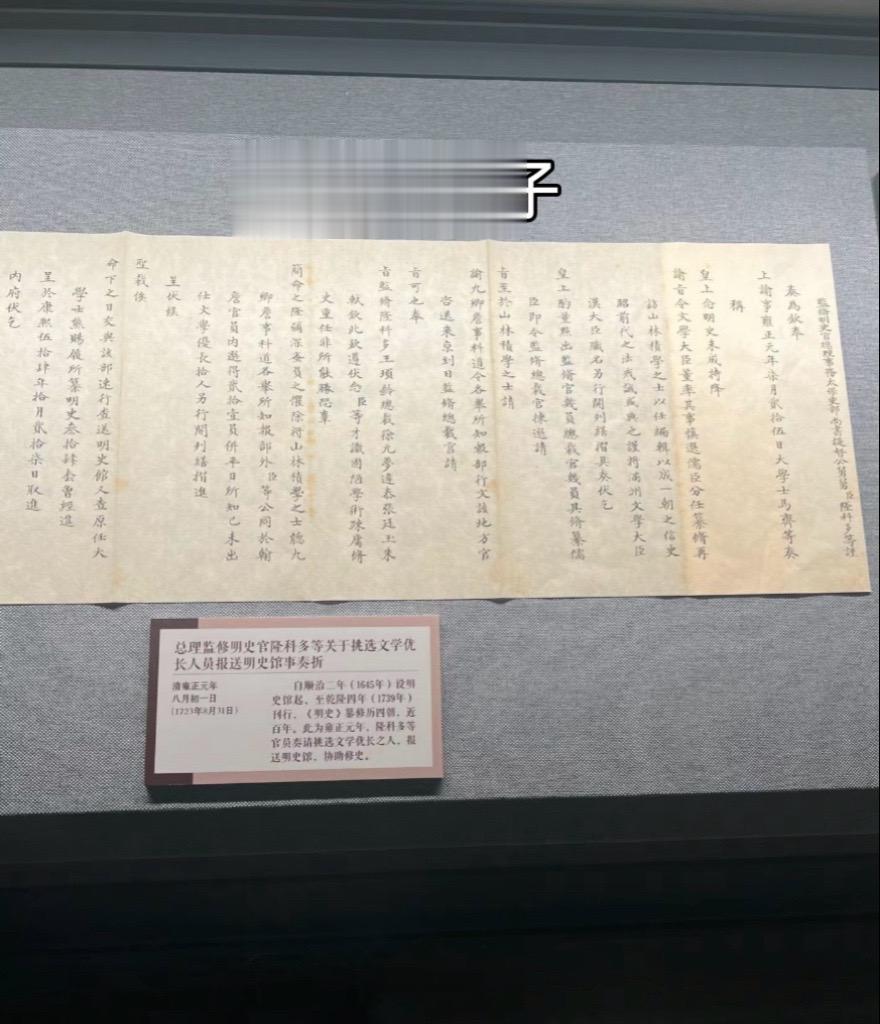 子
監脩明史官總理事務太保吏部尚書提督公舅舅臣隆科多等謹
奏爲欽奉
上諭事雍正元年柒月貳拾伍日大學士馬齊等奏
稱
皇上念明史未成特降
諭旨令文學大臣董率其事慎選儒臣分任纂脩再
訪山林積學之士以任編輯以成一朝之信史
昭前代之法戒誠盛典之謹將滿洲文學大臣
漢大臣職名另行開列繕摺具奏伏乞
皇上酌量點出監脩官幾員總裁官幾員其脩纂儒
臣即令監脩總裁官揀選請
旨至於山林積學之士請
諭九卿詹事科道令各舉所知報部行文該地方官
咨送來京到日監脩總裁官請
旨可也奉
旨監脩隆科多王頊齡總裁徐元夢張廷玉朱
軾欽此欽遵伏念臣等才識固陋學術疎庸脩
史重任非所能勝恐辜
簡命之隆彌深委員之懼除將山林積學之士聽九
卿詹事科道各舉所知報部外臣等公同於翰
詹官員內遴得貳拾壹員併平日所知已未出
仕文學優長拾人另行開列繕摺進
呈伏候
聖裁俟
命下之日交與該部速行查送明史館又查原任大
學士熊賜履所纂明史叁拾肆套曾經進
呈於康熙伍拾肆年拾月貳拾柒日取進
內府伏乞
总理监修明史官隆科多等关于挑选文学优
长人员报送明史馆事奏折
清雍正元年
八月初一日
(1723年8月31日)
自顺治二年（1645年）设明
史馆起，至乾隆四年（1739年）
刊行，《明史》纂修历四朝，近
百年。此为雍正元年，隆科多等
官员奏请挑选文学优长之人，报
送明史馆，协助修史。